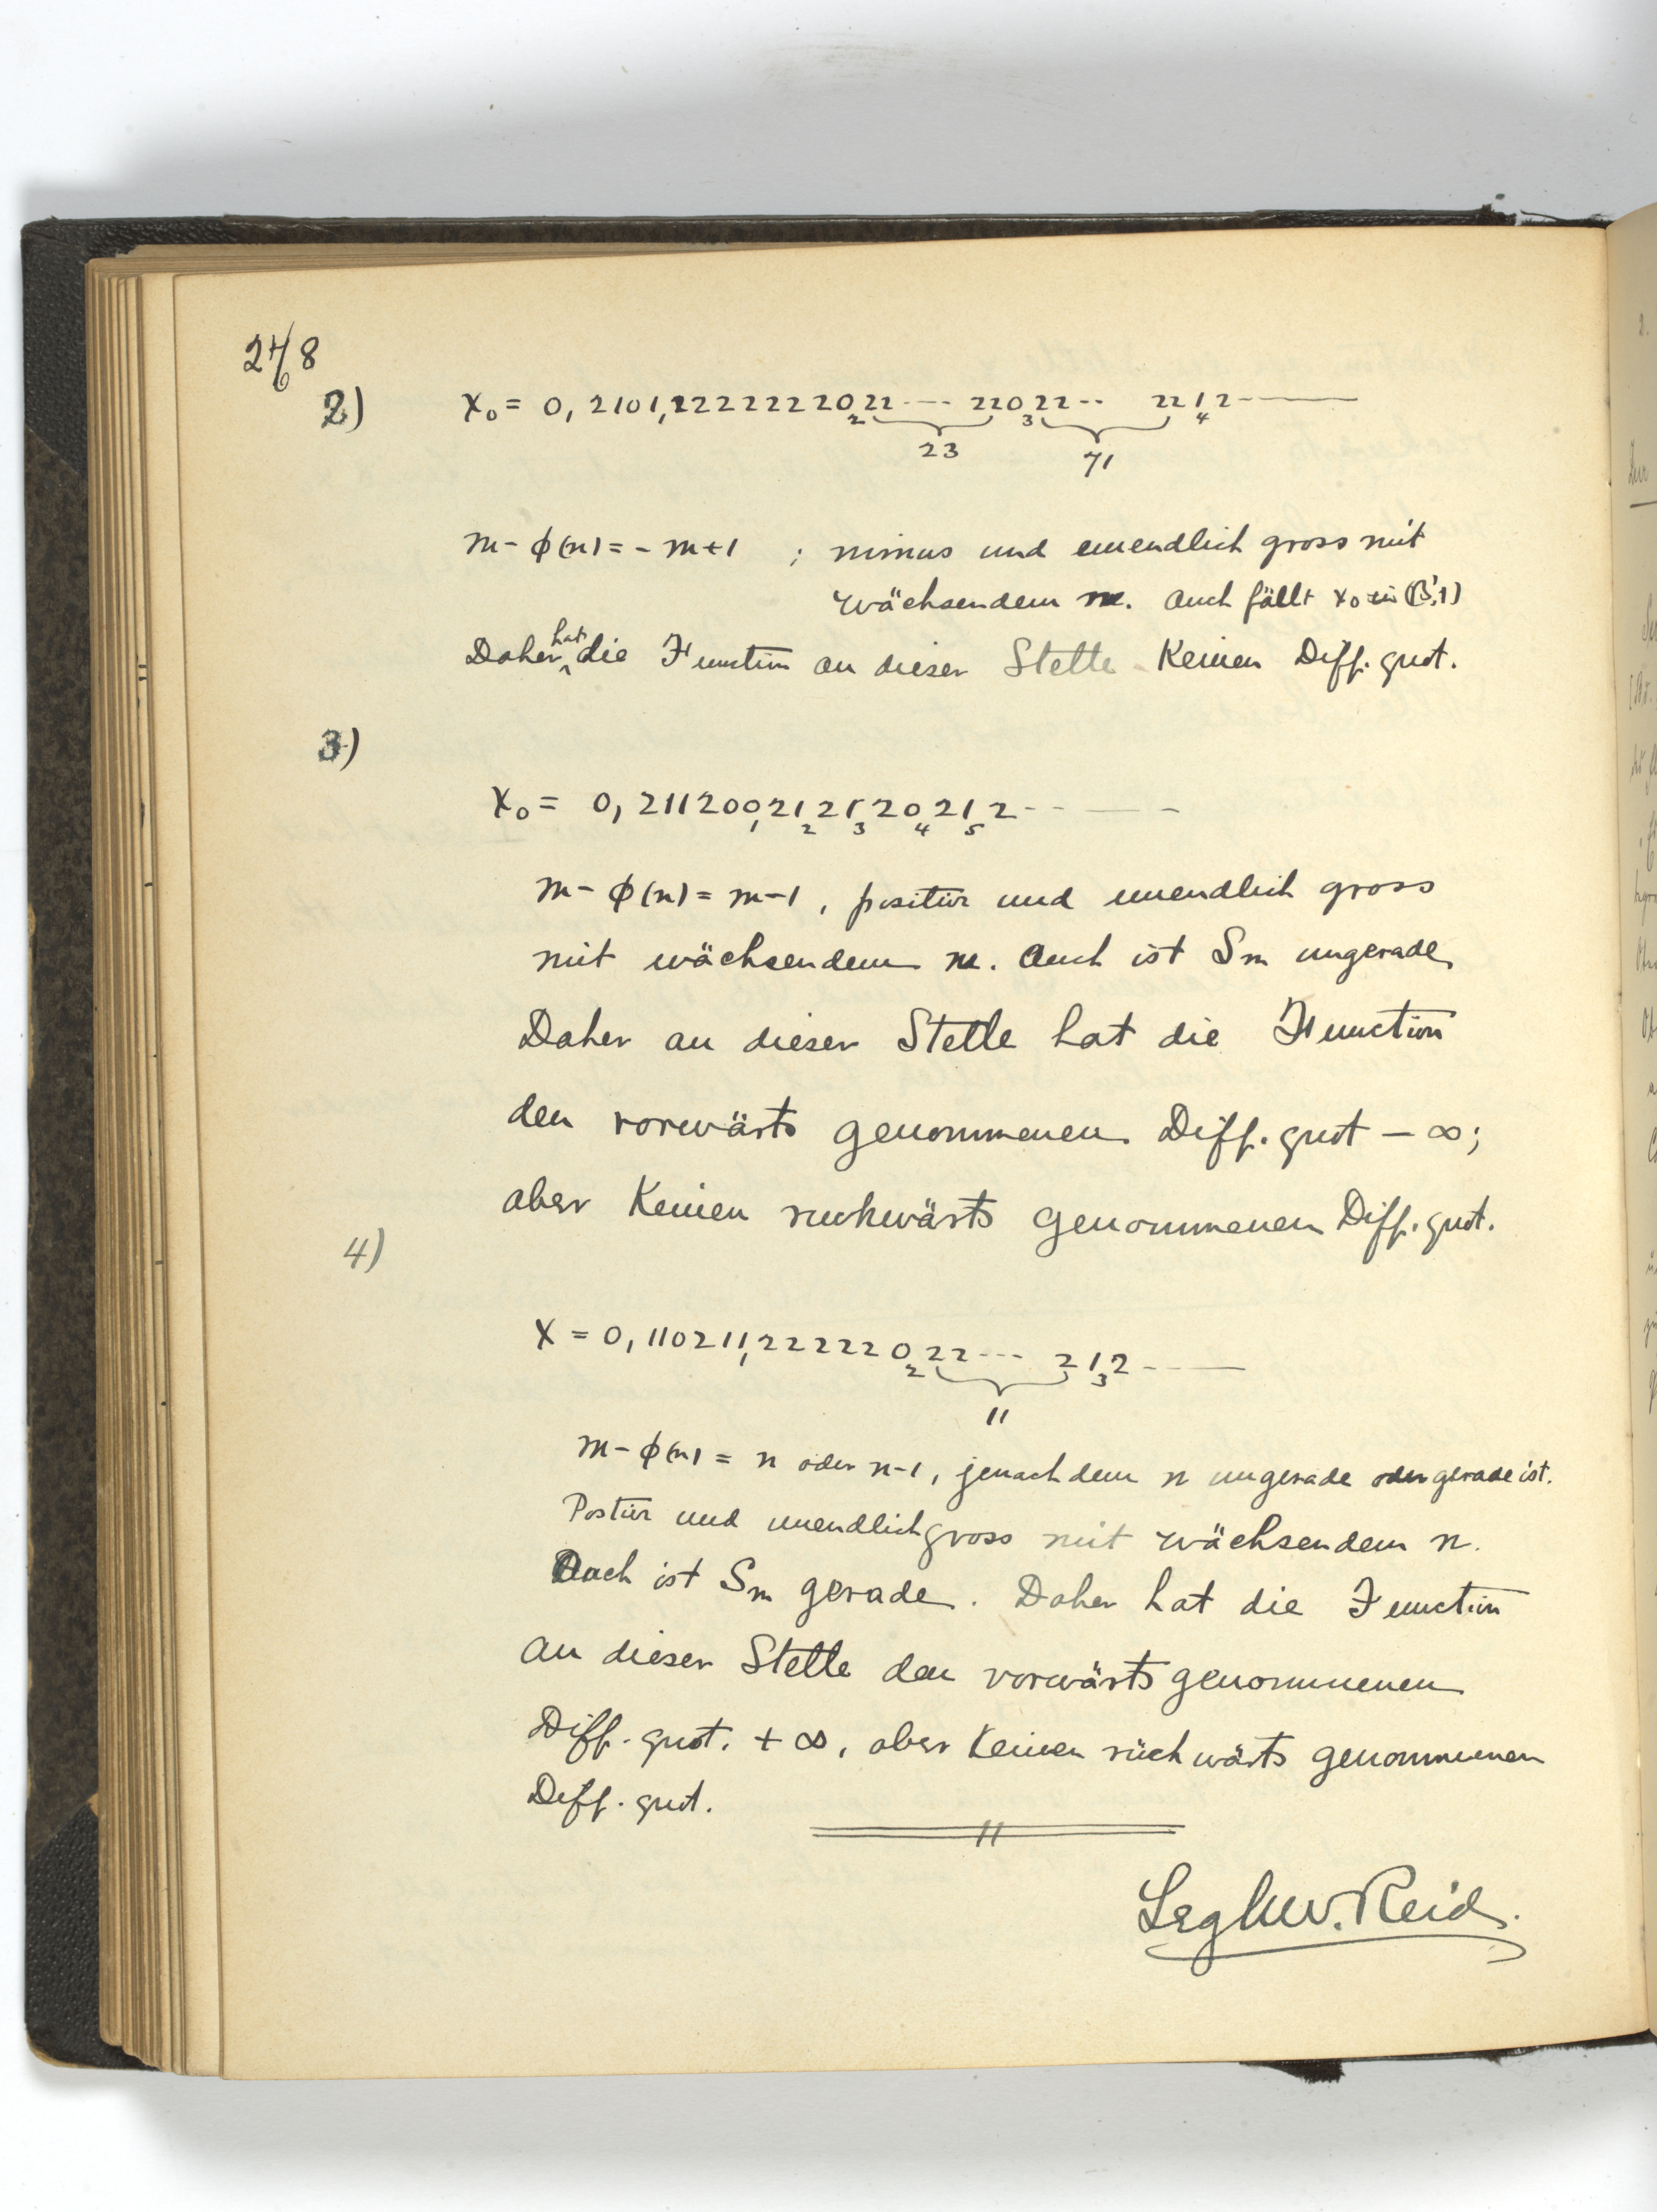 268
2) x₀ = 0, 2101,2222222022---- 22022-- 2212-----
1 2 3 4
23 71
m - ϕ(n) = - m+1 ; minus und unendlich gross mit
wächsendem m. Auch fällt x₀ in (β',1)
Daher hat die Function an dieser Stelle Keinen Diff. quot.
3)
x₀ = 0, 211200212120212-----
1 2 3 4 5
m - ϕ(n) = m-1, positiv und unendlich gross
mit wächsendem m. Auch ist Sm ungerade
Daher an dieser Stelle hat die Function
den vorwärts genommenen Diff. quot - ∞;
aber Keinen ruckwärts genommenen Diff. quot.
4)
X = 0, 110211,22222022--- 212-----
1 2 3
11
m - ϕ(n) = n oder n-1, jenachdem n ungerade oder gerade ist.
Postiv und unendlich gross mit wächsendem n.
Auch ist Sm gerade. Daher hat die Function
an dieser Stelle den vorwärts genommenen
Diff. quot. + ∞, aber Keinen rückwärts genommenen
Diff. quot.
Legh W. Reid.